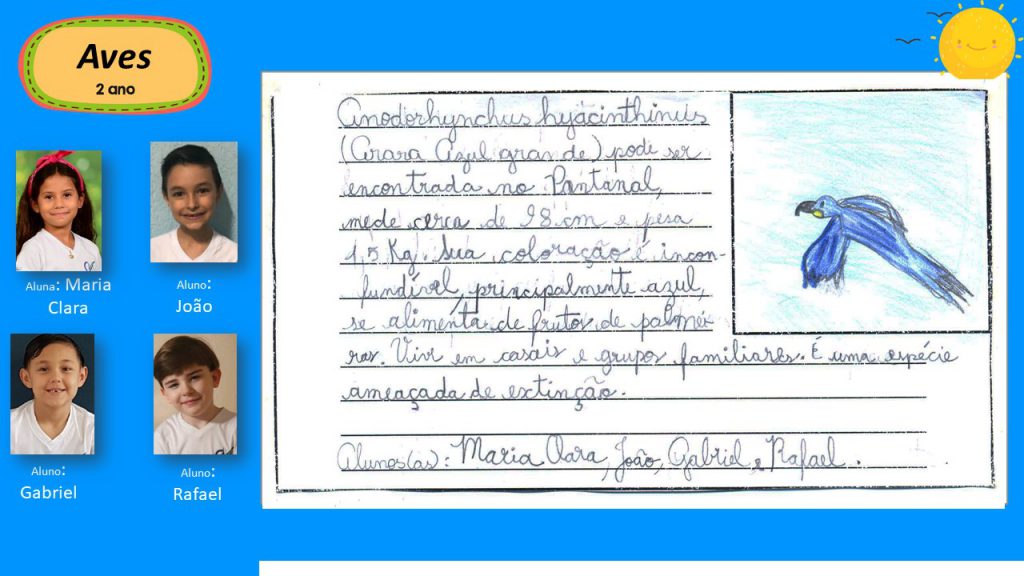 Aves
2 ano
Aluna: Maria
Clara
Aluno:
João
Aluno:
Gabriel
Aluno:
Rafael
Anodorhynchus hyacinthinus
(Arara Azul grande) pode ser
encontrada no Pantanal,
mede cerca de 98 cm e pesa
1,5 Kg. Sua coloração é incon-
fundível, principalmente azul,
se alimenta de frutos de palmei
ras. Vive em casais e grupos familiares. É uma espécie
ameaçada de extinção.
Alunos(as): Maria Clara, João, Gabriel e Rafael.